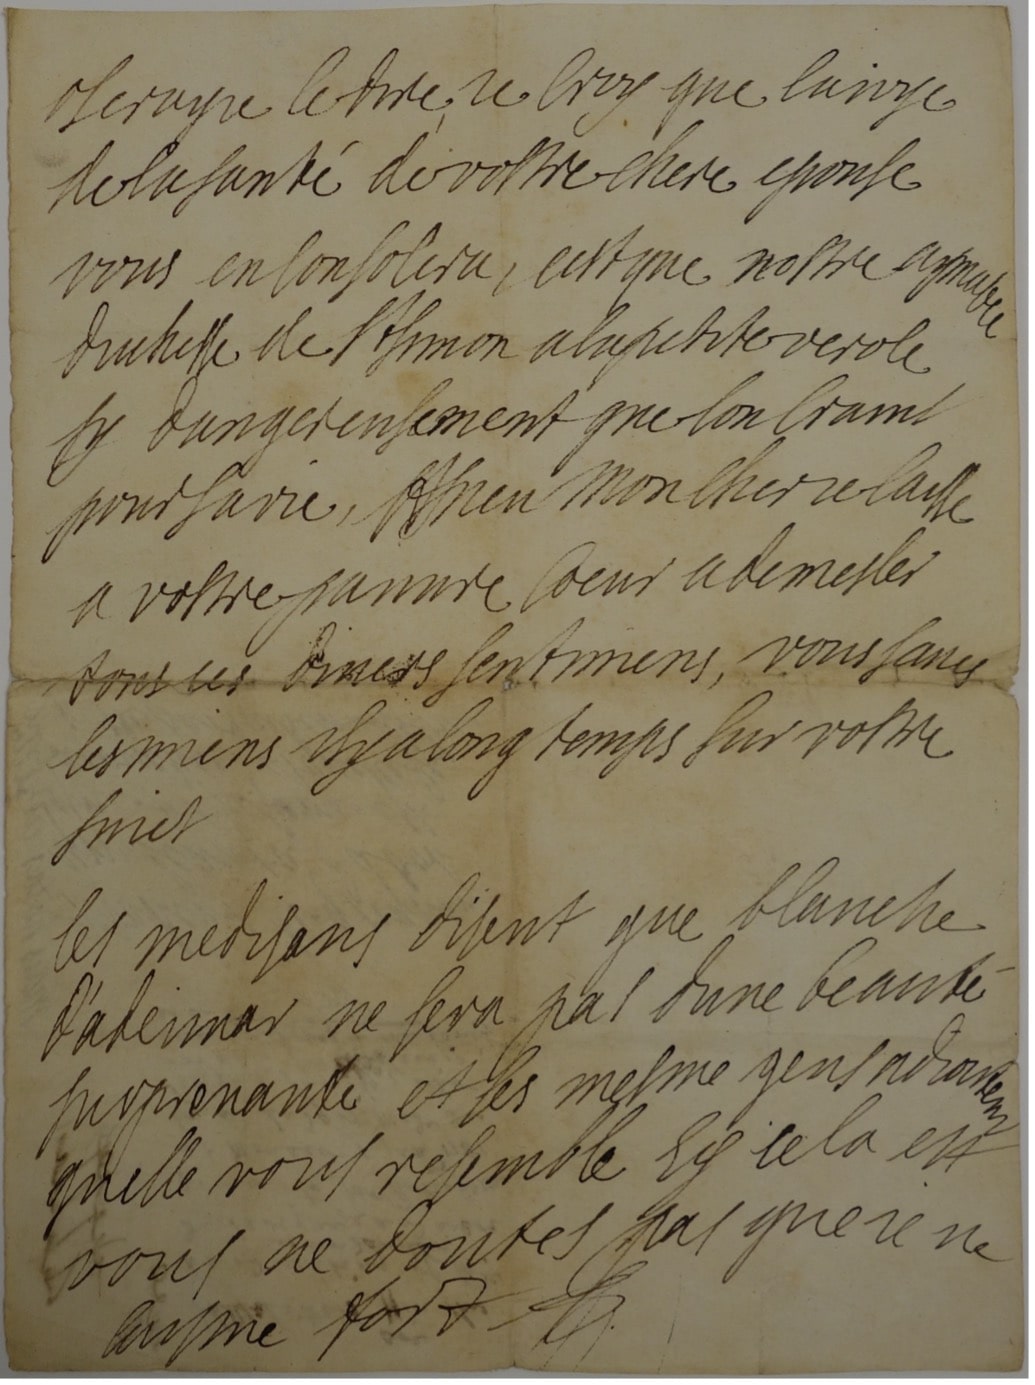 oseroye le dire, ie croy que la ioye
de la santé de vostre chere espouse
vous en consolera, cest que nostre aymable
duchesse de St simon a la petite verole
sy dangereusement que lon craint
pour sa vie, Adieu mon cher ie laisse
a vostre pauure coeur a demesler
tous ces diuers sentimens, vous saues
les miens il y a long temps sur vostre
suiet
les medisans disent que blanche
d'adeimar ne sera pas dune beauté
surprenante et les mesme gens adioutent
quelle vous resemble sy cela est
vous ne doutes pas que ie ne
layme fort